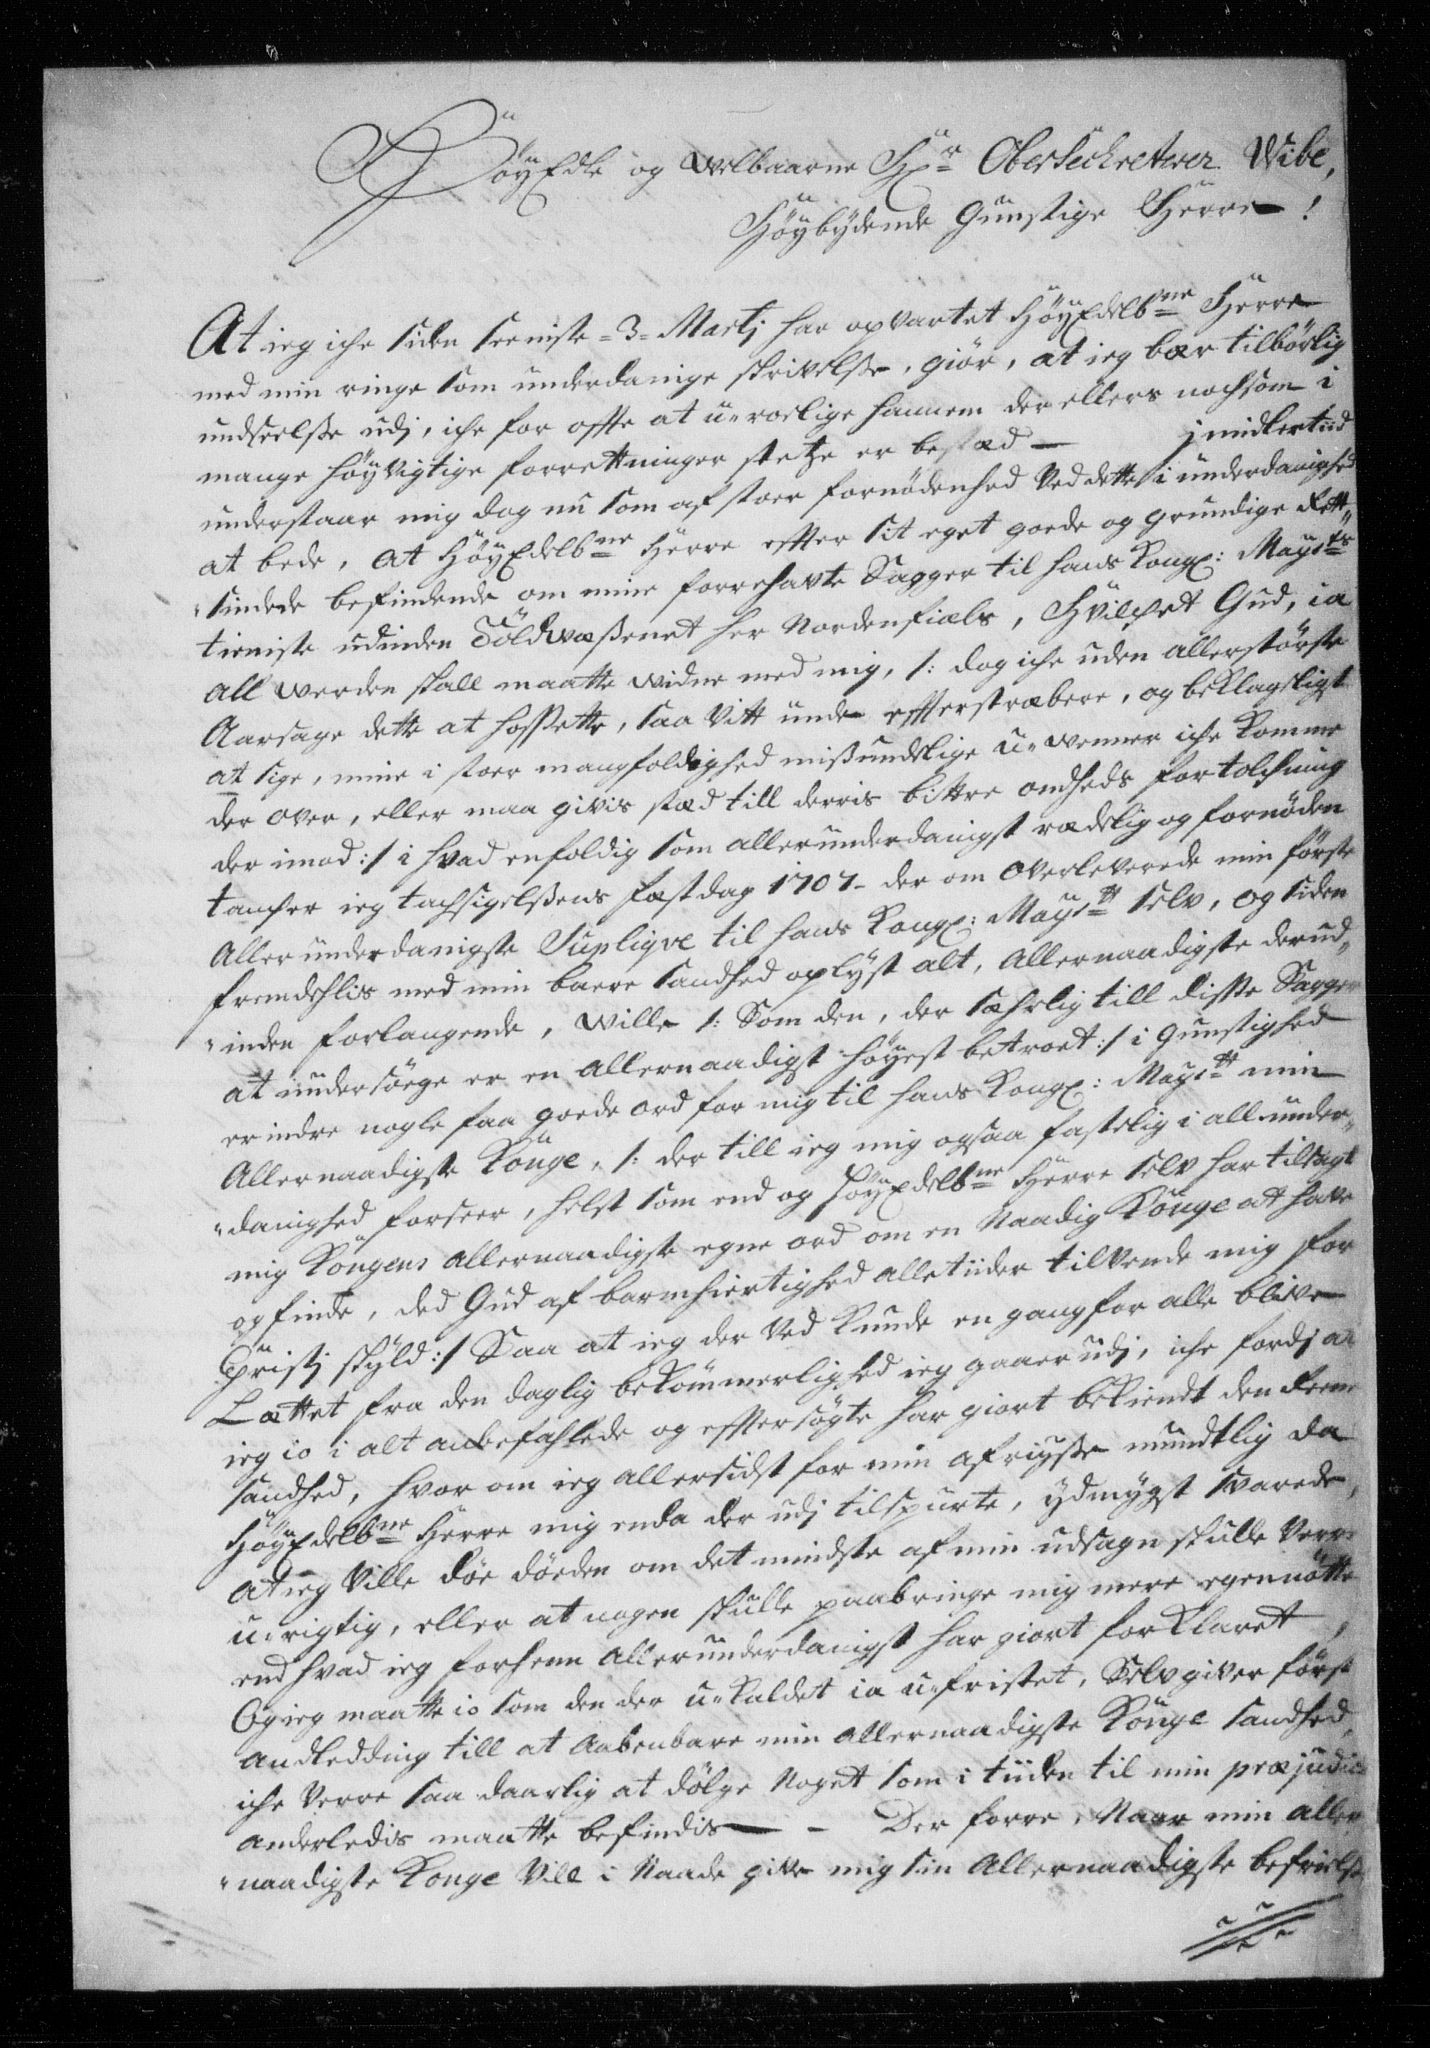 HöyEdle og Welbaarne Hr Obersechreterer Wibe,
Höybydende Gunstige Herre !
At ieg iche siden seeniste =3= Martj har opvartet HöyEdelbne Herre
med min ringe som underdanige skrivelsse, giör, at ieg bær tilbörlig
undseelsse udj, iche for offte at u=roelige hannem der ellers nochsom i
mange höyvigtige forrettninger stetze er bestæd — jmidlertiid
understaar mig dog nu som af stoer fornödenhed Ved dette i underdanighed
at bede, At HöyEdelbne Herre effter sit eget goede og grundige Rett=
=sindede befindende om mine forrehavte Sagger til hans Kongl: Maysts
tieniste udinden Toldwæssenet her Nordenfiæls, Hvilchet Gud, ia
all werden skall maatte widne med mig, /: dog iche uden allerstörste
Aarsage dette at hossette, saa Vitt unde effterstræbere, og beklageligt
at sige, mine i stoer mangfoldighed missundelige u=wenner iche komme
der over, eller maa givis stæd till derris bittre ondheds fortolchning
der imod :/ i hvad enfoldig som allerunderdanigst rædelig og fornöden
tancher ieg tachsigelssens fæstdag 1707– der om overleverede min förste
Allerunderdanigste Supliqve til hans Kongl: Maystt selv, og siden
fremdehlis med min baere sandhed oplyst alt, Allernaadigste derud=
=inden forlangende, wille /: Som den, der sæhrlig till disse Sagger
at undersöege er en allernaadigst höyest betroet :/ i Gunstighed
erindre nogle faa goede ord for mig til hans Kongl: Maystt min
Allernaadigste Konge, /: der till ieg mig ogsaa fastelig i all under=
=danighed forseer, helst som end og HöyEdelbne Herre selv har tilsagt
mig Kongens allernaadigste egne ord om en Naadig Konge at have
og finde, ded Gud af barmhiertighed alletiider tilvende mig for
Christj skyld :/ Saa at ieg der Ved kunde en gang for alle blive
Lættet fra den daglig bekömmerlighed ieg gaaer udj, iche fordj at
ieg io i alt anbefahlede og efftersögte har giort bekiendt den Reene
sandhed, hvor om ieg allersidst for min afreysse mundtlig da
HöyEdelbne Herre mig enda der udj tilspurte, ydmygst svarede,
At ieg Ville döe döeden om det mindste af min udsagn skulle Verre
u=rigtig, eller at nogen skulle paabringe mig mere egennötte
end hvad ieg forhenn Allerunderdanigst har giort forklaret,
Og ieg maatte io som den der u=kaldet ia u=fristet, Selv giver först
Andledding till at Aabenbare min Allernaadigste Konge sandhed,
iche Verre saa daarlig at dölge Noget som i tiiden til min præjudice
anderledis maatte befindis — – Der forre, Naar min aller
=naadigste Konge Vill i Naade give mig sin Allernaadigste befrielse